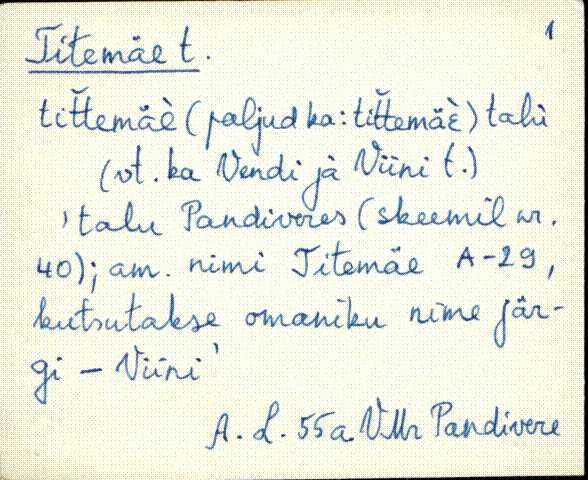 1
Titemäe t.
tit̆temäè (paljud ka: tit̆temäè) talù
(vt. ka Vendi jà Viini t.)
'talu Pandiveres (skeemil nr.
40); am. nimi Titemäe A-29,
kutsutakse omaniku nime jär-
gi – Viini'
A. L. 55a VMr Pandivere